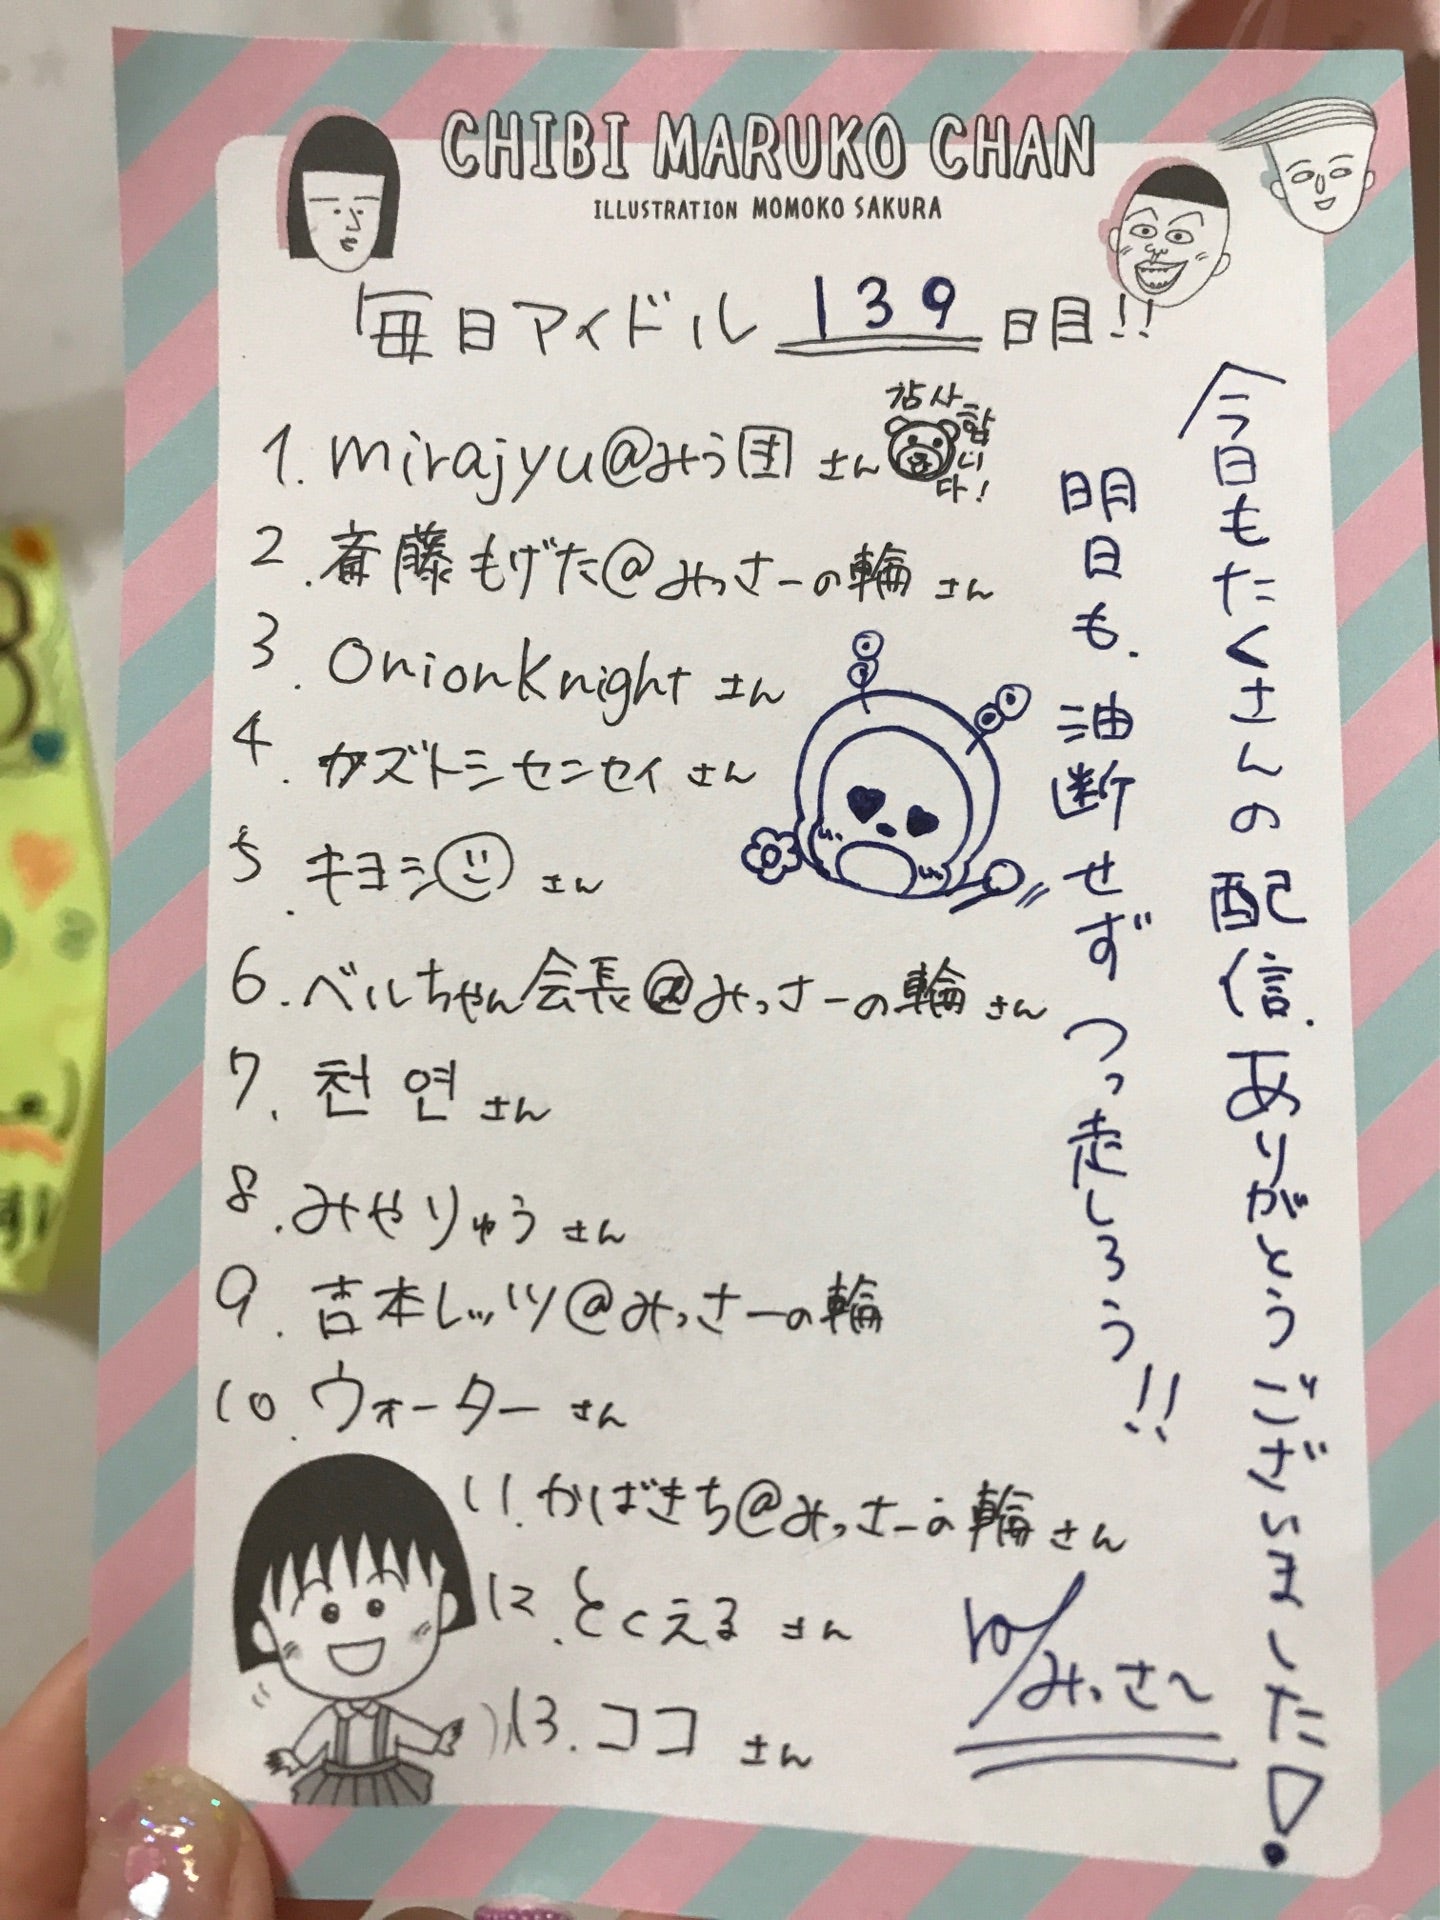 CHIBI MARUKO CHAN
ILLUSTRATION MOMOKO SAKURA
毎日アイドル 139 日目!!
1. mirajyu@みう国 さん
감사합니다!
2. 斎藤もげた@みっさーの輪 さん
3. Onionknight さん
4. カズトシセンセイ さん
5. キヨシ さん
6. ベルちゃん会長@みっさーの輪 さん
7. 천연 さん
8. みやりゅう さん
9. 吉本レッツ@みっさーの輪
10. ウォーター さん
11. かばきち@みっさーの輪 さん
12. とくえる さん
13. ココ さん
今日もたくさんの配信.ありがとうございました!
明日も.油断せずつっ走しろう!!
みっさ〜